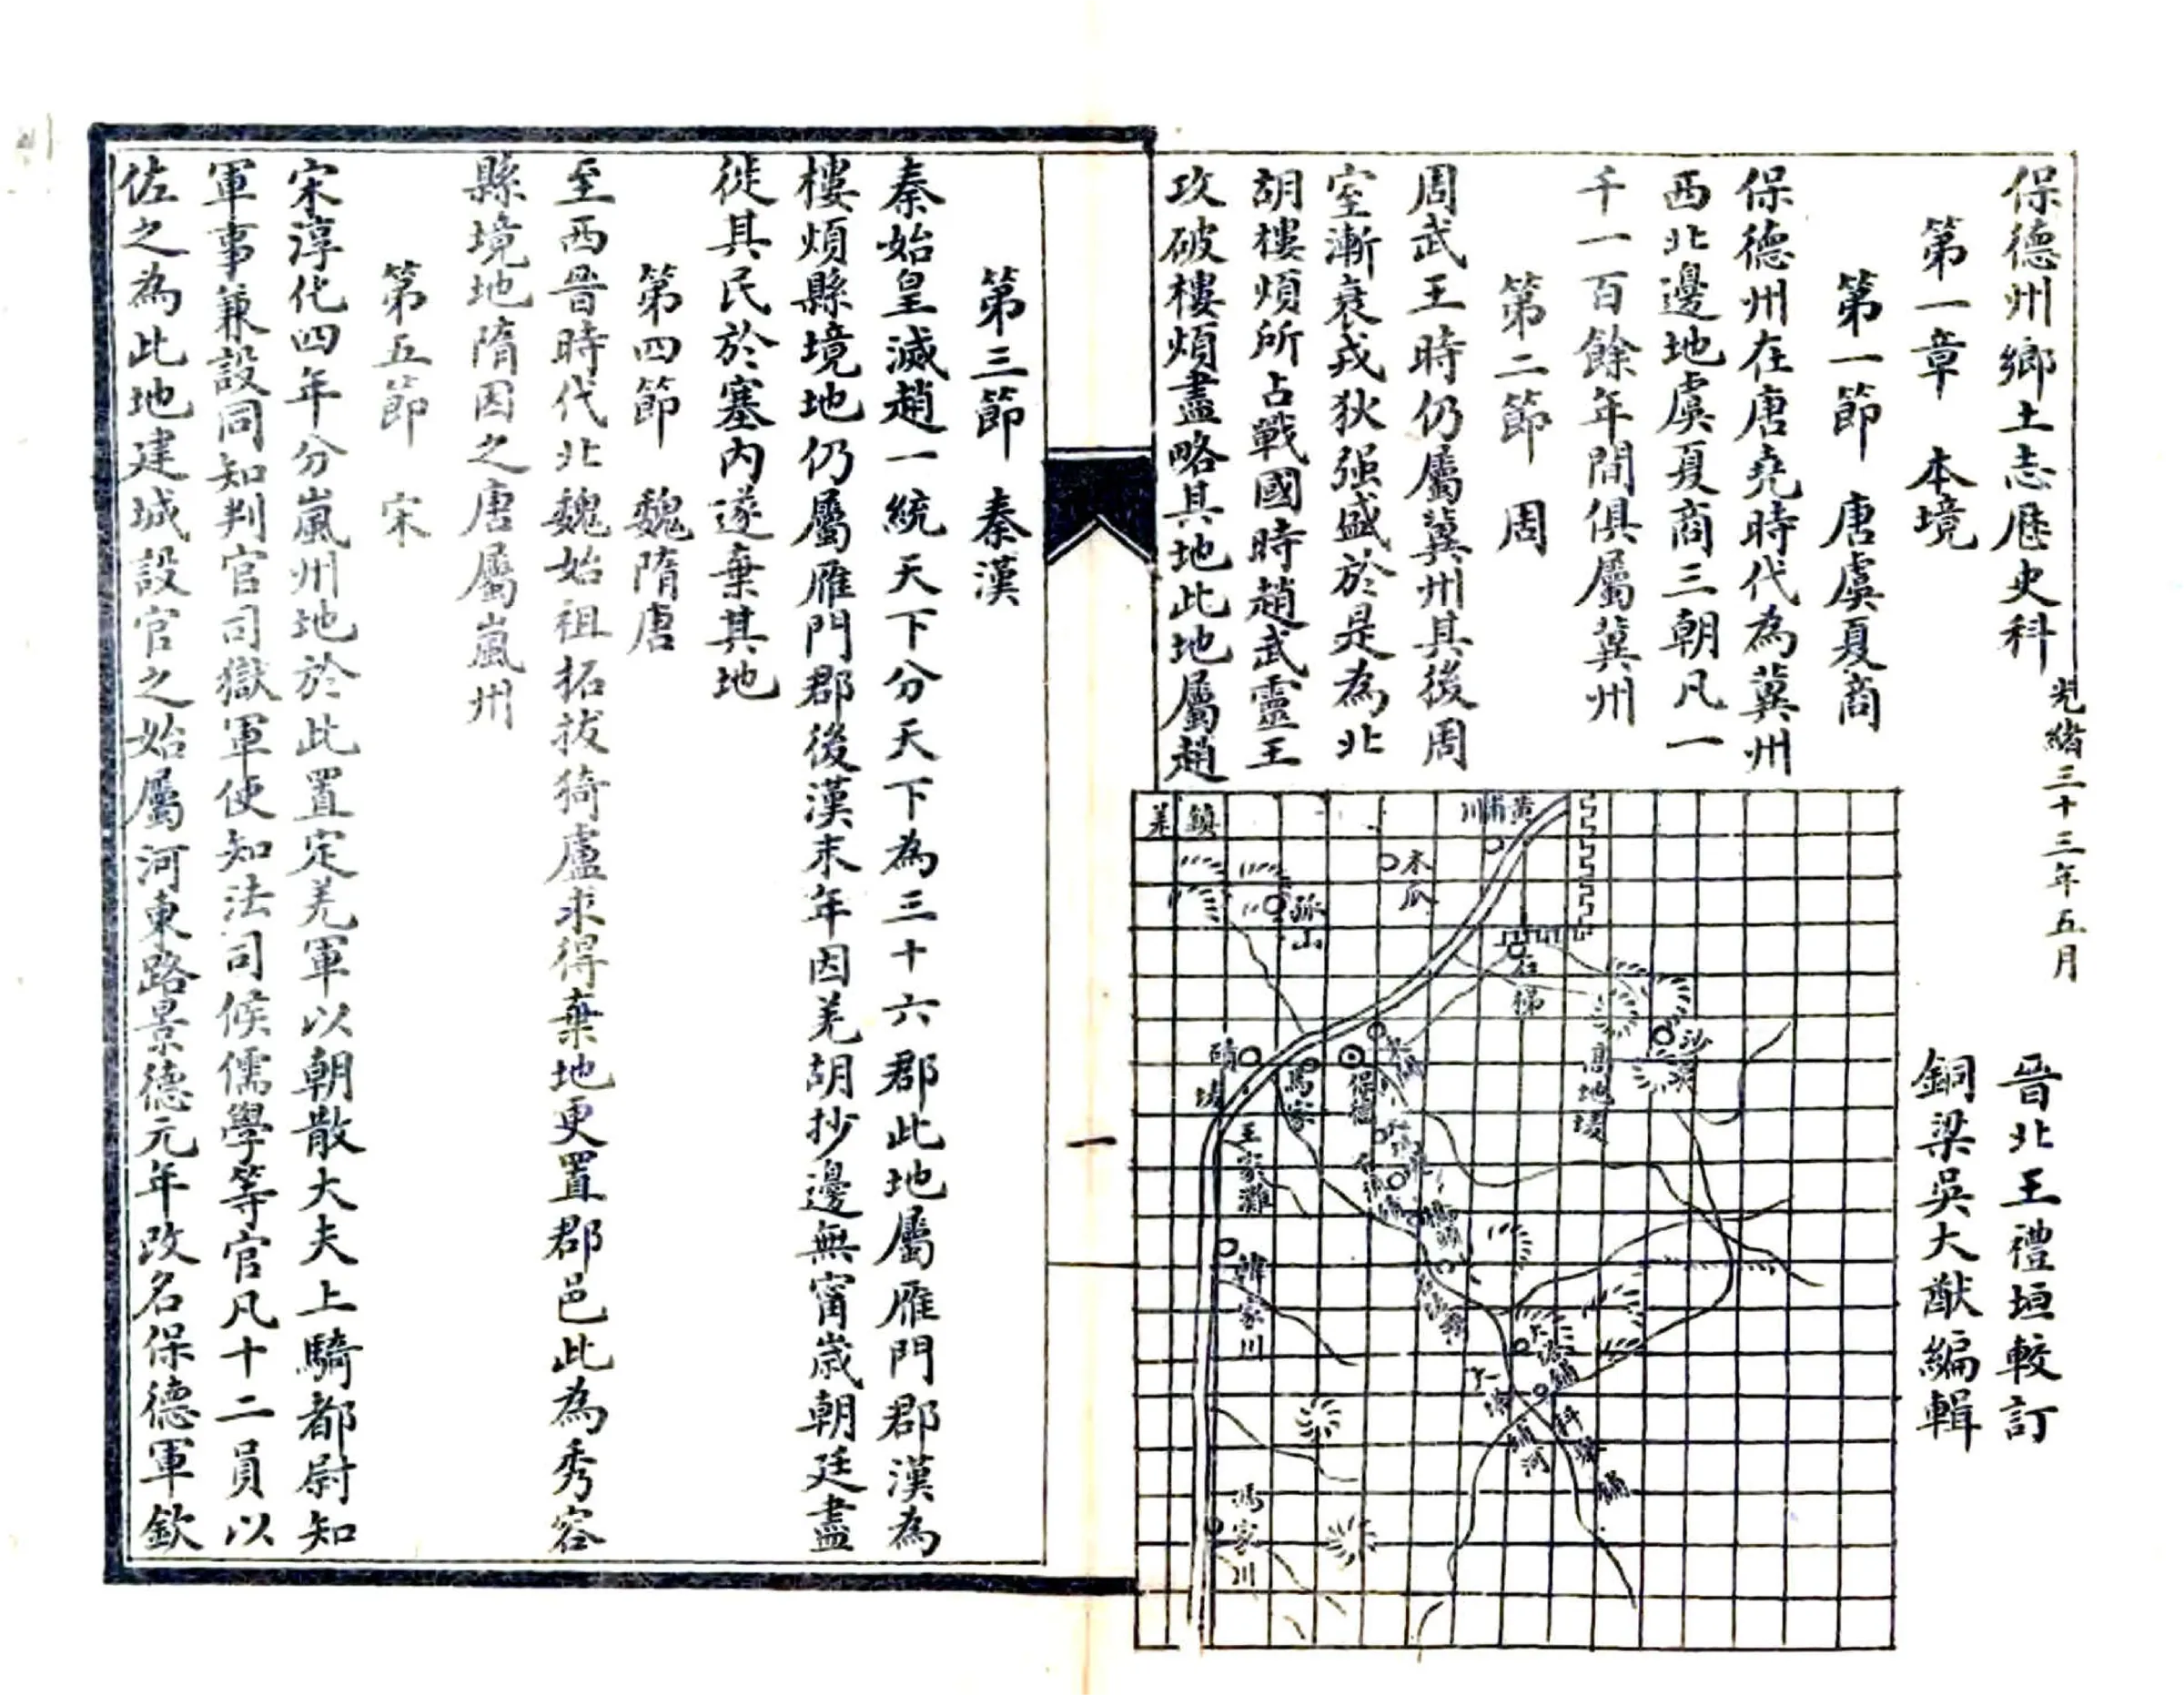 保德州鄉土志歷史科
光緒三十三年五月
晉北王禮垣較訂
銅梁吳大猷編輯
第一章 本境
第一節 唐虞夏商
保德州在唐堯時代為冀州
西北邊地虞夏商三朝凡一
千一百餘年間俱屬冀州
第二節 周
周武王時仍屬冀州其後周
室漸衰戎狄强盛於是為北
胡樓煩所占戰國時趙武靈王
攻破樓煩盡略其地此地屬趙
黃甫川
鎮羌
木瓜
孤山
石梯
沙泉
高地埝
保德
馬家
王家灘
韓家川
馮家川
一
第三節 秦漢
秦始皇滅趙一統天下分天下為三十六郡此地屬雁門郡漢為
樓煩縣境地仍屬雁門郡後漢末年因羌胡抄邊無甯歲朝廷盡
徙其民於塞內遂棄其地
第四節 魏隋唐
至西晉時代北魏始祖拓拔猗盧求得棄地更置郡邑此為秀容
縣境地隋因之唐屬嵐州
第五節 宋
宋淳化四年分嵐州地於此置定羌軍以朝散大夫上騎都尉知
軍事兼設同知判官司獄軍使知法司候儒學等官凡十二員以
佐之為此地建城設官之始屬河東路景德元年改名保德軍欽